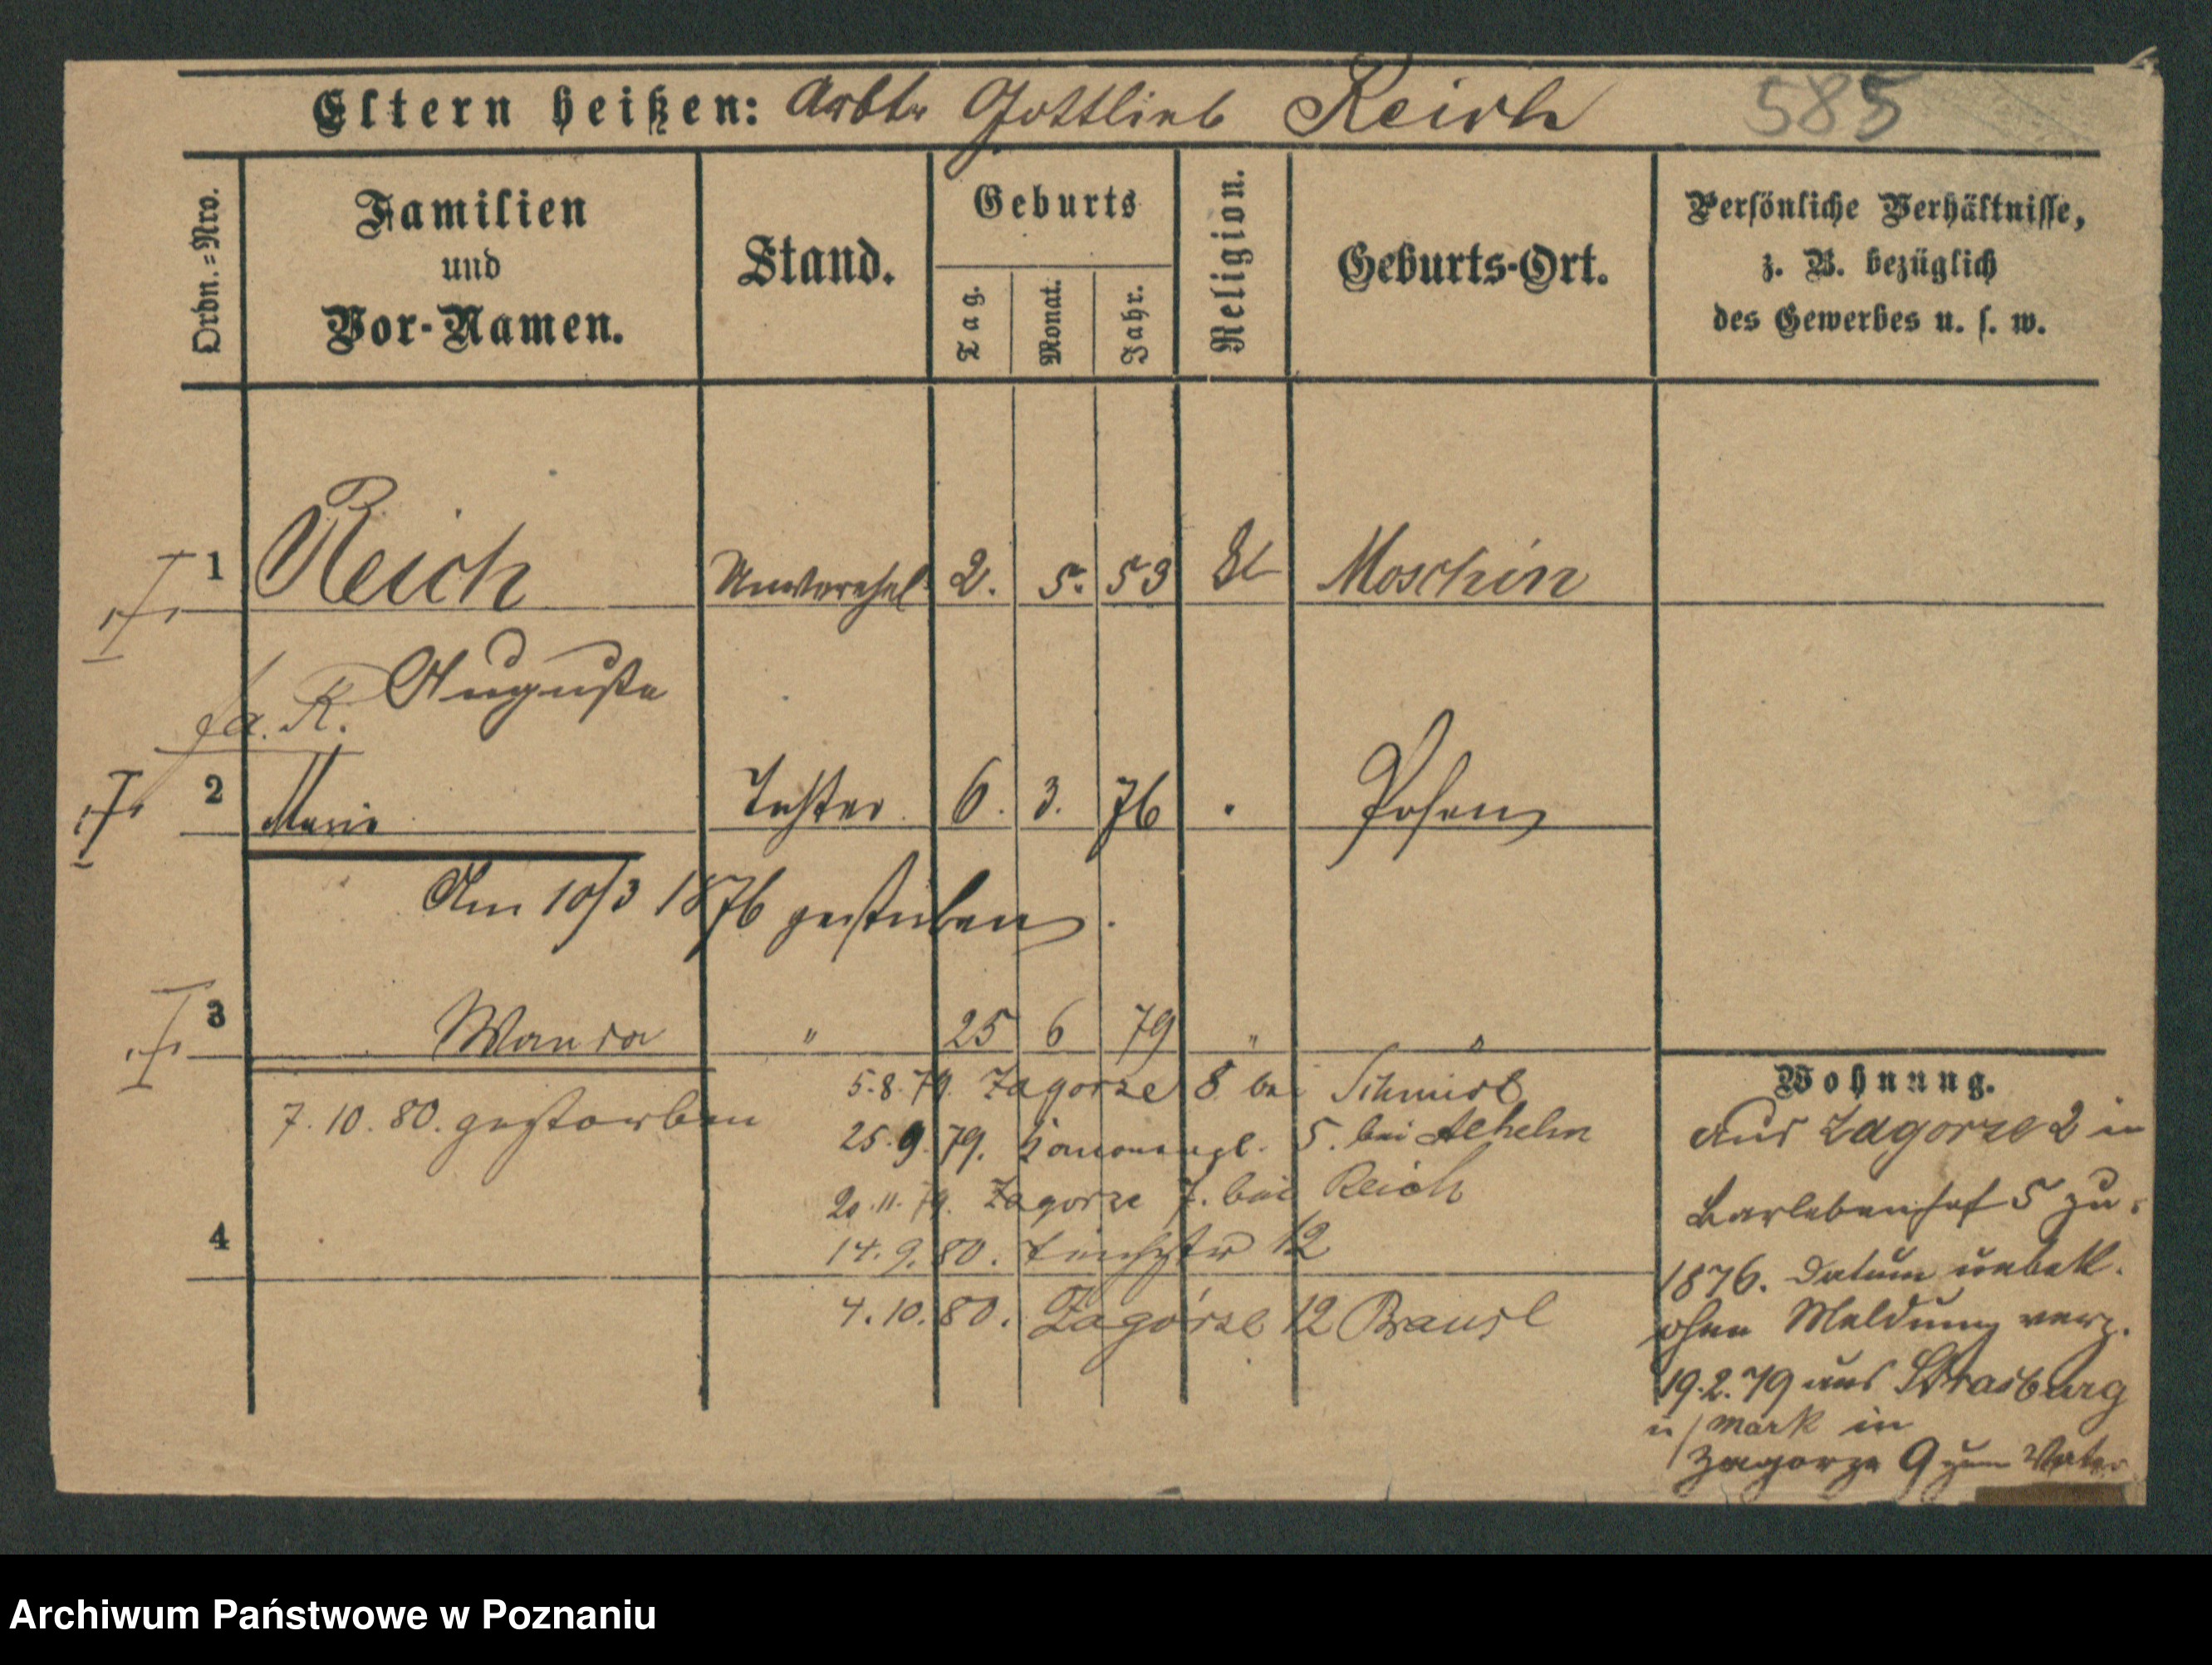 Eltern heißen: Arbtr Gottlieb Reich 585
Ordn.=Nro.
Familien
und
Vor-Namen.
Stand.
Geburts
Tag.
Monat.
Jahr.
Religion.
Geburts-Ort.
Persönliche Verhältnisse,
z. B. bezüglich
des Gewerbes u. s. w.
1 Reich Unverehel. 2. 5. 53 Moschin
Auguste
fa. R.
2 Marie Tochter 6. 3. 76 Posen
Am 10/3 1876 gestorben.
3 Wanda " 25 6 79 "
7. 10. 80. gestorben
5.8.79. Zagorze 8 bei Schmidt
25.9.79. 5. bei
20.11.79. Zagorze 7. bei Reich
4
14.9.80. 12
4.10.80. Zagórze 12
Wohnung.
aus Zagorze 2 in
Barlebenshof 5 zu.
1876. Datum unbek.
ohne Meldung verz.
19.2.79 aus Strasburg
u/Mark in
Zagorze 9 zum Vater
Archiwum Państwowe w Poznaniu